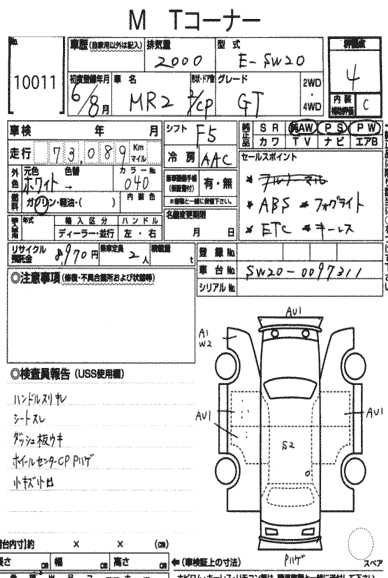 M Tコーナー
No.
10011
車歴 (自家用以外は記入)
排気量
型式
2000
E-SW20
評価点
4
内装
補助評価
C
初度登録年月
車名
形状・ドア数
グレード
6/8月
MR2
2/CP
GT
2WD
・
4WD
車検 年 月
シフト
F5
純正品
SR AW PS PW
カワ TV ナビ エアB
走行
73,089
Km
マイル
冷房
AAC
セールスポイント
外色
元色 色替
カラーNo.
ホワイト→
040
有・無
＊ABS ＊フォグライト
＊ETC ＊キーレス
燃料
ガソリン・軽油・( )
内装色
名義変更期限
月 日
年式
輸入区分
ハンドル
ディーラー・並行
左・右
リサイクル預託金
8,970円
乗車定員
2人
積載量
t
登録No.
車台No.
SW20-0097311
シリアルNo.
◎注意事項 (修復・不具合箇所および状態等)
◎検査員報告 (USS使用欄)
ハンドルスリキレ
シートスレ
ダッシュ板ウキ
ホイールセンターCPハゲ
小キズ小凹
AU1
A1
W2
AU1
AU1
S2
Pハゲ
スペア
荷台内寸) 約 × × (cm)
長さ cm 幅 cm 高さ cm
←(車検証上の寸法)